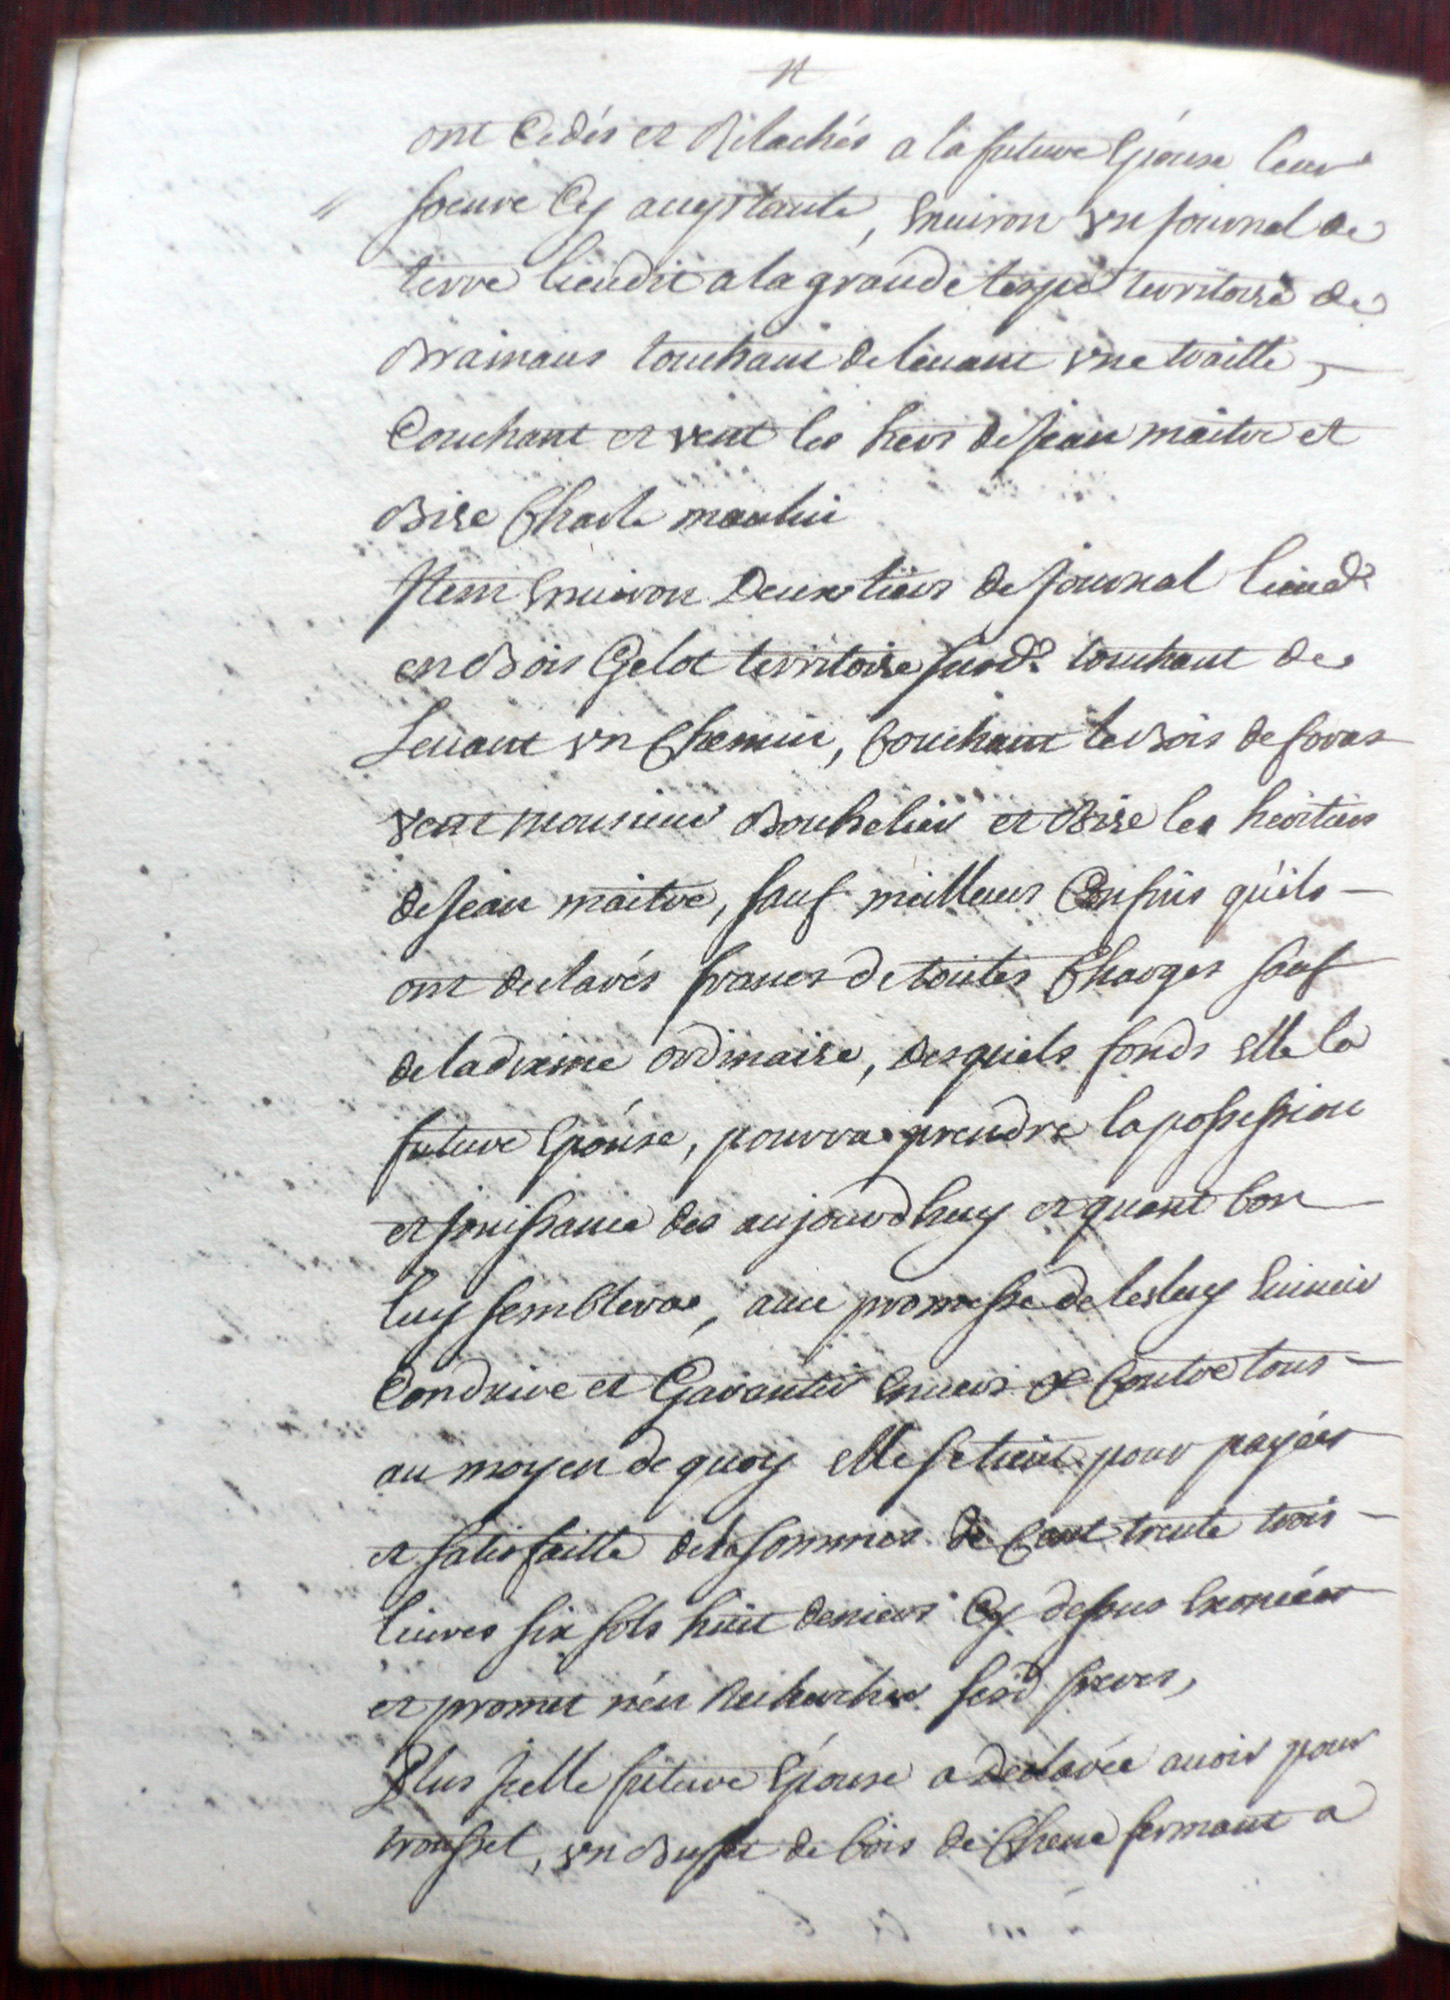 ont Cedés et Relachés a la future Epouse leur
soeure Cy aceptante, Enuiron vn journal de
terre lieudit a la grande territoire de
Brainans touchant de leuant vne traitte,
Couchant et vent les hers de Jean maitre et
Bise Charle maulin
Item Enuiron Deux tiers de journal lieud.
en Bois Gelot territoire susd. touchant de
Leuant vn Chemin, Couchant le Bois de foras
vent monsieur Bouhelier et Bise les heritiers
de Jean maitre, sauf meilleurs Confins quils
ont declarés francs de toutes Charges sauf
de la dixme ordinaire, desquels fonds elle la
future Epouse, pourra prendre la possession
et jouissance des aujourdhuy et quant bon
luy semblera, auec promesse de les luy
Conduire et Garantir Enuers & Contre tous
au moyen de quoy elle se tient pour payées
et satisfaitte de la sommes de Cent trente trois
liures six sols huit deniers Cy dessus
et promet n'en Rechercher sesd freres,
Plus icelle future Epouse a declarée auoir pour
troussel, vn Buffet de bois de Chene fermant a